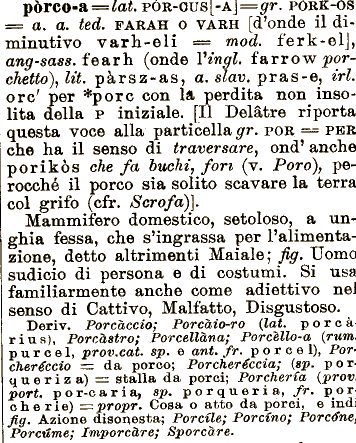 pòrco-a = lat. PÒR-CUS[-A] = gr. PÒRK-OS
= a. a. ted. FARAH o VARH [d'onde il di-
minutivo varh-eli = mod. ferk-el],
ang-sass. fearh (onde l'ingl. farrow por-
chetto), lit. pàrsz-as, a. slav. pras-e, irl.
orc' per *porc con la perdita non inso-
lita della P iniziale. [Il Delâtre riporta
questa voce alla particella gr. POR = PER
che ha il senso di traversare, ond'anche
porikòs che fa buchi, fori (v. Poro), pe-
rocché il porco sia solito scavare la terra
col grifo (cfr. Scrofa)].
Mammifero domestico, setoloso, a un-
ghia fessa, che s'ingrassa per l'alimenta-
zione, detto altrimenti Maiale; fig. Uomo
sudicio di persona e di costumi. Si usa
familiarmente anche come adiettivo nel
senso di Cattivo, Malfatto, Disgustoso.
Deriv. Porcàccio; Porcàio-ro (lat. porcà-
rius), Porcàstro; Porcellàna; Porcèllo-a (rum.
purcel, prov.cat. sp. e ant. fr. porcel), Por-
cheréccio = da porco; Porcheréccia; (sp. por-
queriza) = stalla da porci; Porcheria (prov.
port. por-caria, sp. porqueria, fr. por-
cherie) = propr. Cosa o atto da porci, e indi
fig. Azione disonesta; Porcile; Porcino; Porcóne,
Porcúme; Imporcàre; Sporcàre.